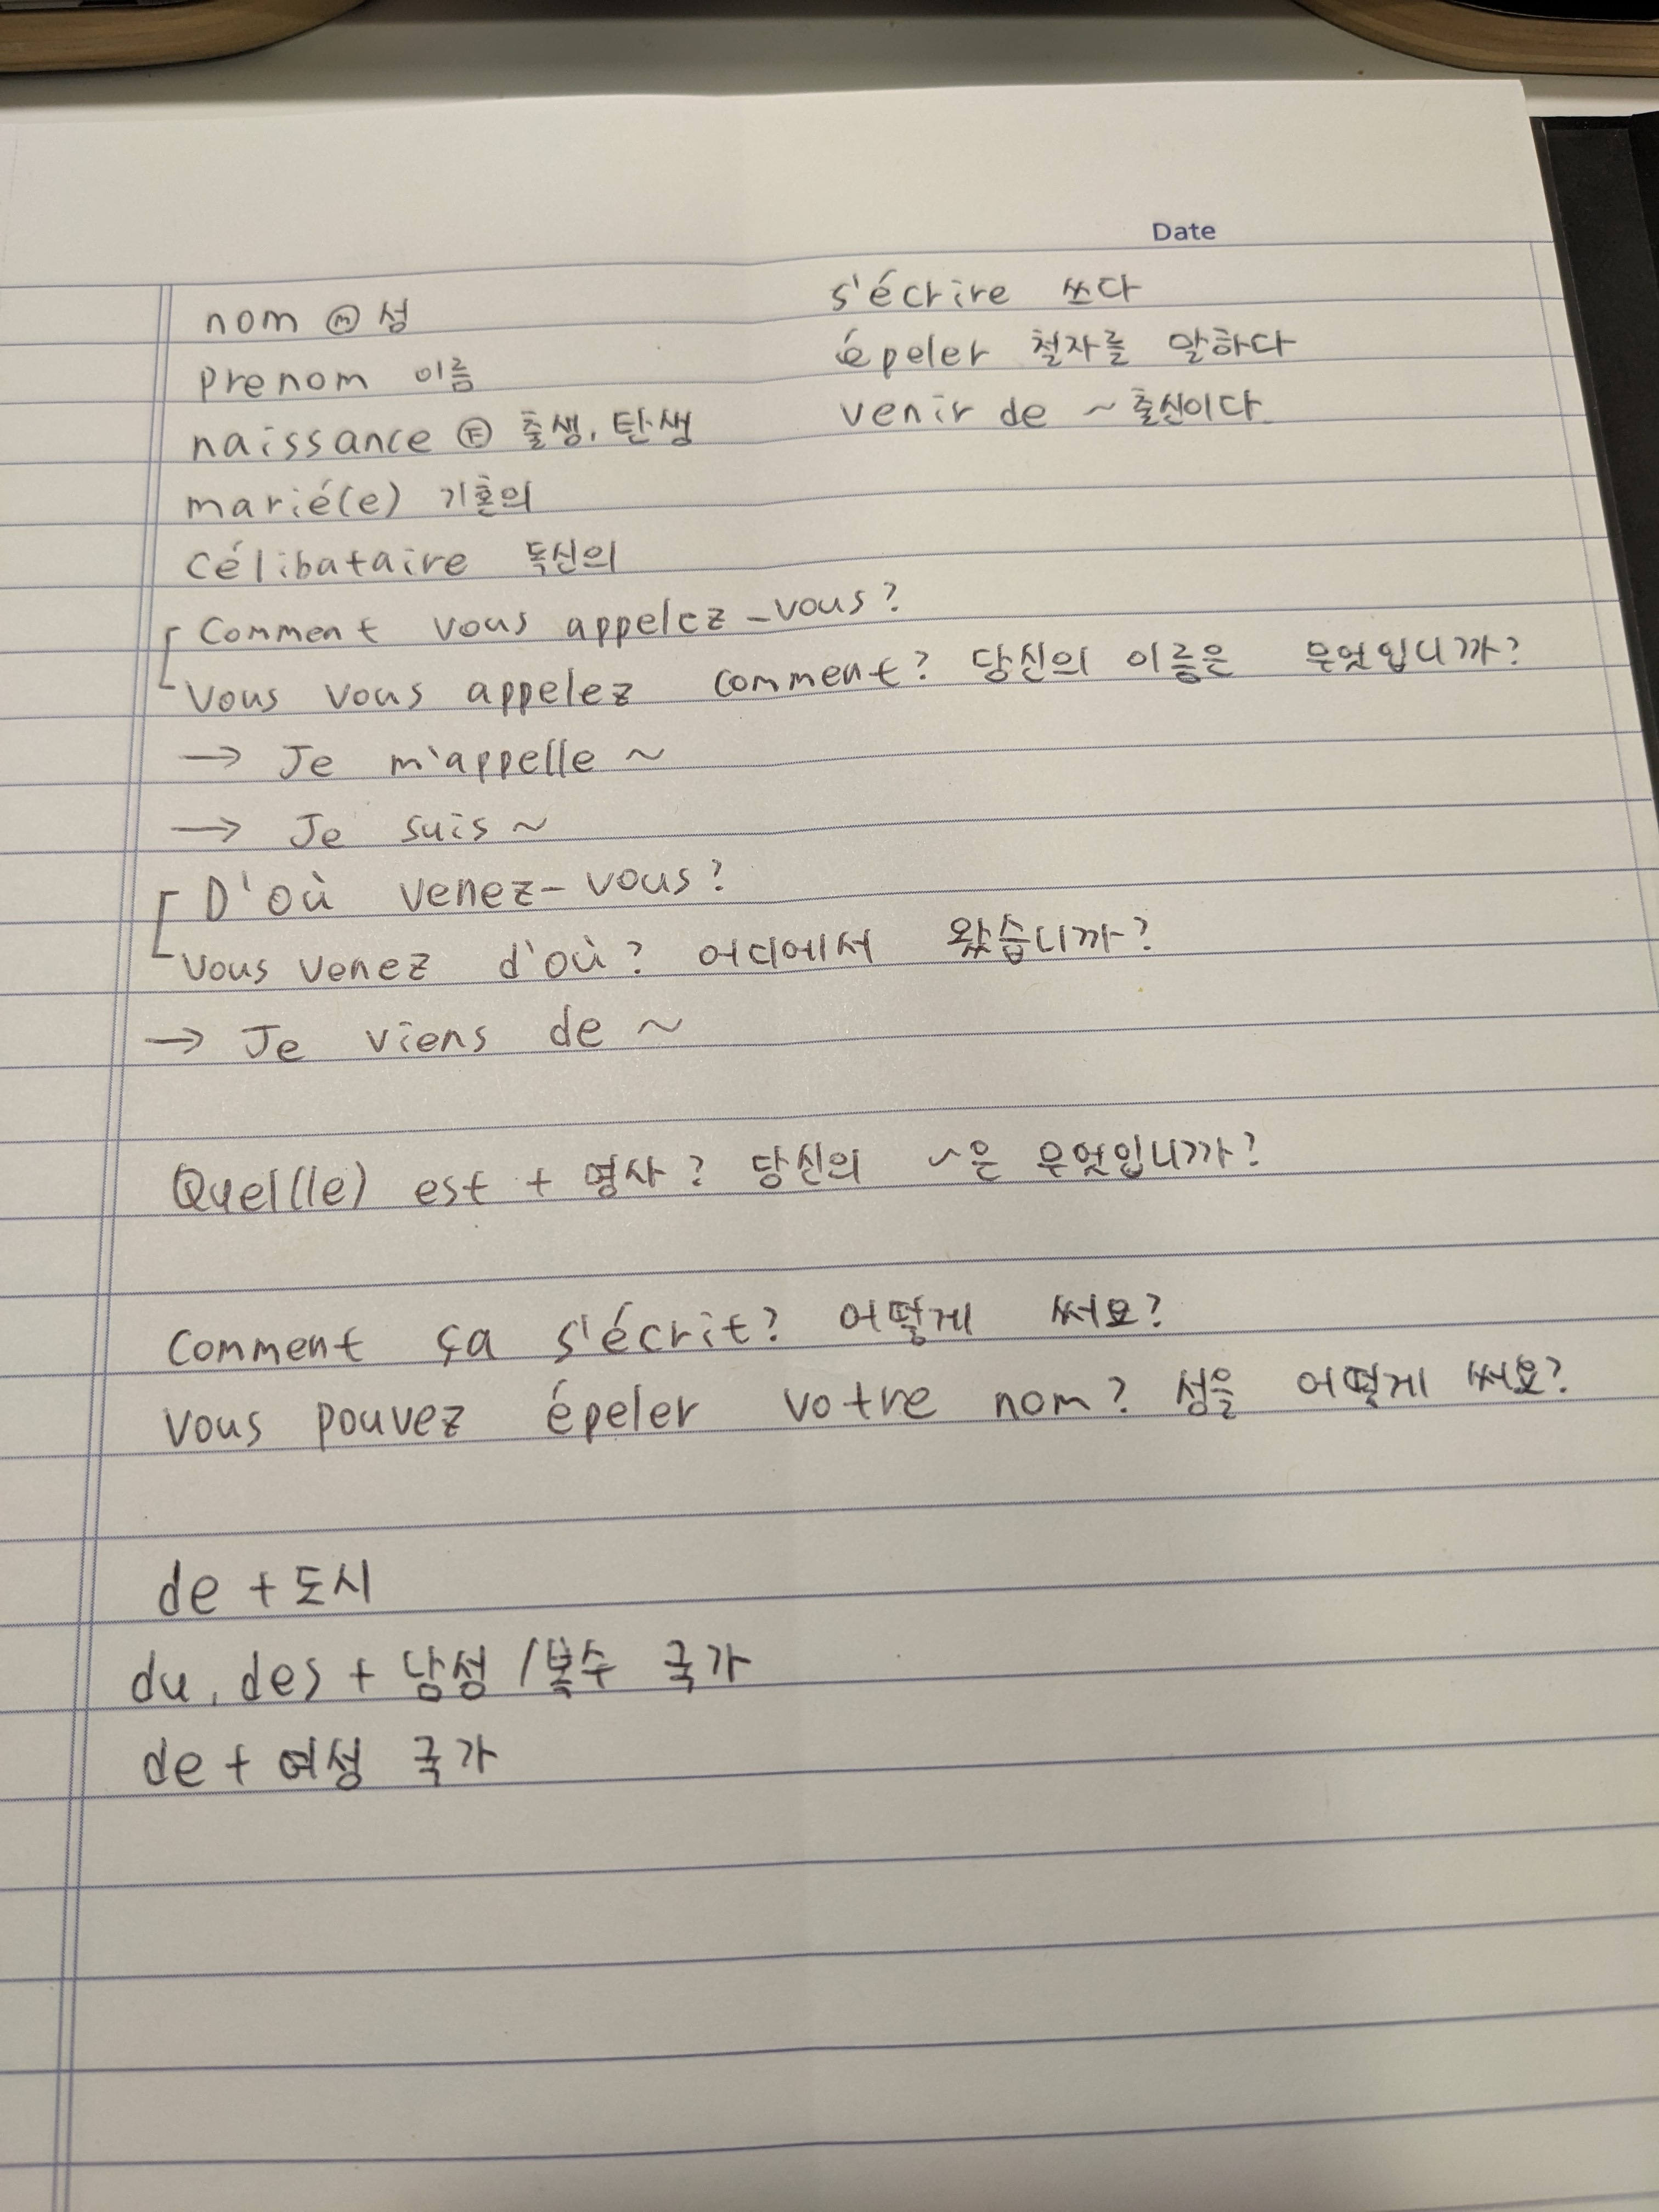 Date
nom ⓜ 성
prenom 이름
naissance Ⓕ 출생, 탄생
marié(e) 기혼의
célibataire 독신의
s'écrire 쓰다
épeler 철자를 말하다
venir de ~ 출신이다.
Comment vous appelez-vous?
Vous vous appelez comment? 당신의 이름은 무엇입니까?
→ Je m'appelle ~
→ Je suis ~
D'où venez-vous?
Vous venez d'où? 어디에서 왔습니까?
→ Je viens de ~
Quel(le) est + 명사? 당신의 ~은 무엇입니까?
Comment ça s'écrit? 어떻게 써요?
Vous pouvez épeler votre nom? 성을 어떻게 써요?
de + 도시
du, des + 남성/복수 국가
de + 여성 국가